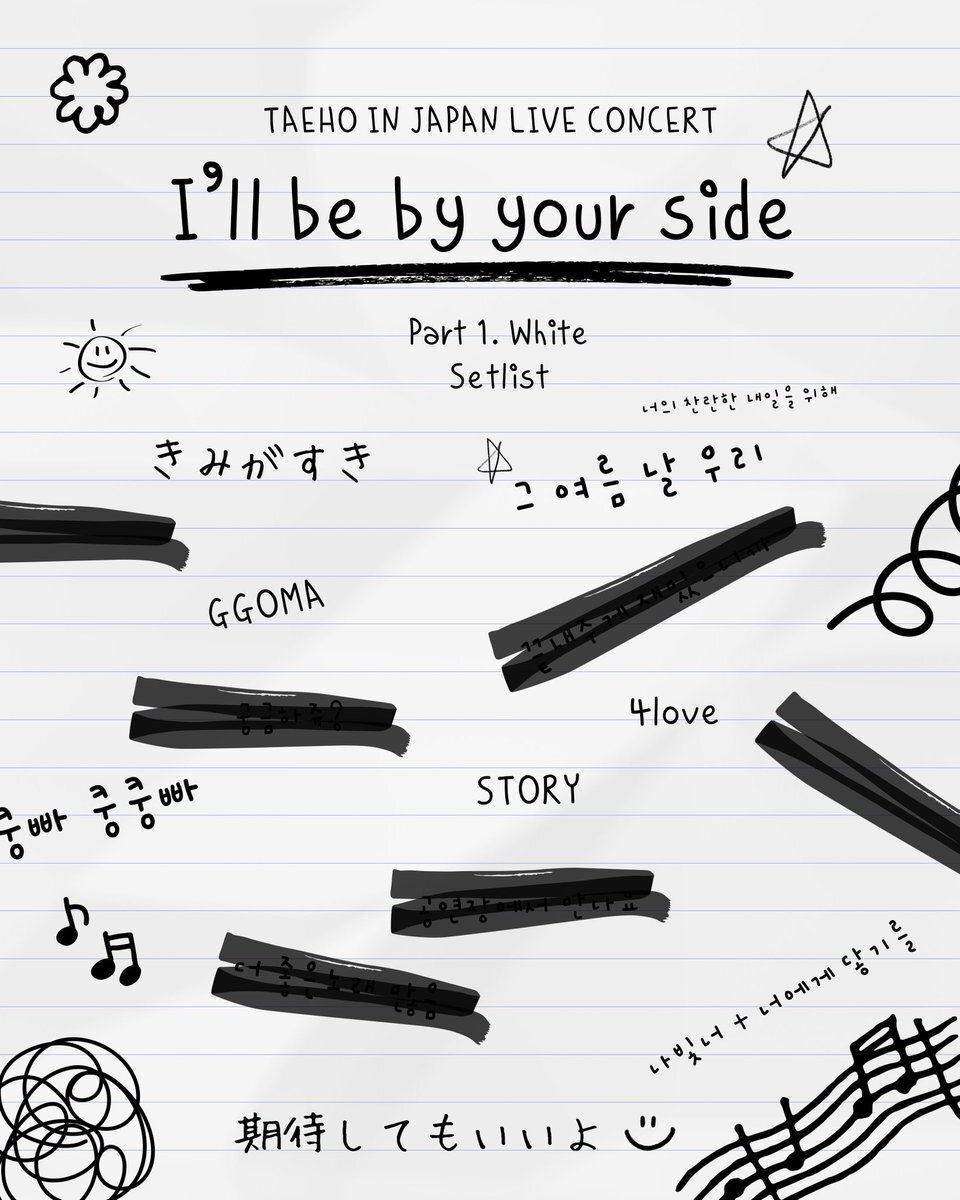 TAEHO IN JAPAN LIVE CONCERT
I'll be by your side
Part 1. White
Setlist
너의 찬란한 내일을 위해
きみがすき
그 여름 날 우리
GGOMA
궁금하쥬?
4love
STORY
쿵빠 쿵쿵빠
공연장에서 만나요
더 좋은 노래 많음
나빛너 + 너에게 닿기를
期待してもいいよ